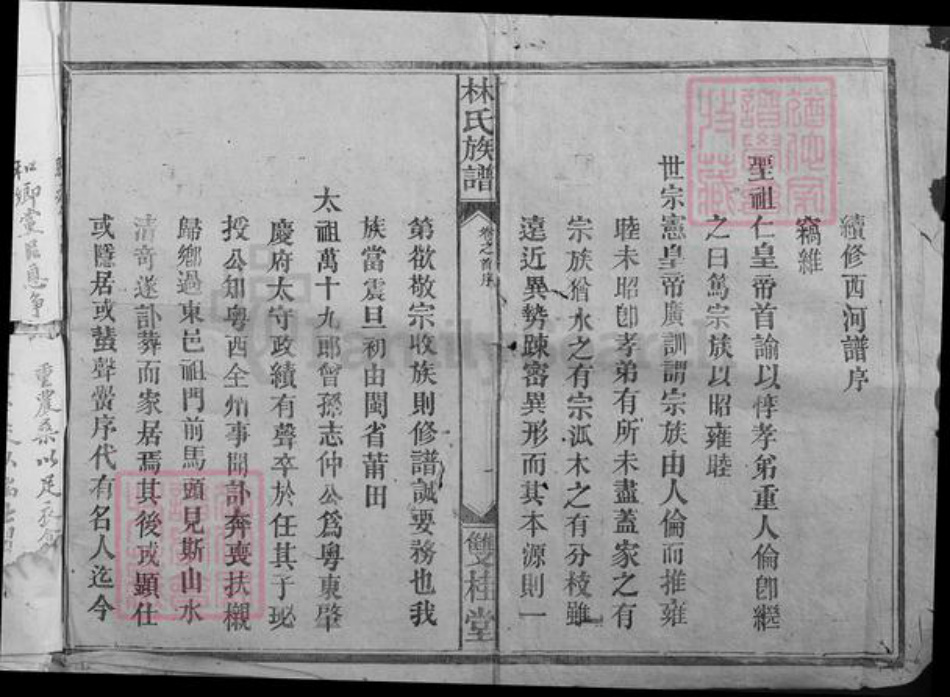 續修西河譜序
竊維
聖祖仁皇帝首諭以惇孝弟重人倫卽繼
之曰篤宗族以昭雍睦
世宗憲皇帝廣訓謂宗族由人倫而推雍
睦未昭卽孝弟有所未盡蓋家之有
宗族猶水之有宗派木之有分枝雖
遠近異勢踈密異形而其本源則一
林氏族譜
卷之首序
雙桂堂
第欲敬宗收族則修譜誠要務也我
族當震旦初由閩省莆田
太祖萬十九郎曾孫志仲公爲粤東肇
慶府太守政績有聲卒於任其子珌
授公知粤西全州事聞訃奔喪扶櫬
歸鄉過東邑祖門前馬頭見斯山水
清竒遂訃葬而家居焉其後或顯仕
或隱居或蜚聲黌序代有名人迄今
和鄉黨以息爭
重農桑以足衣食